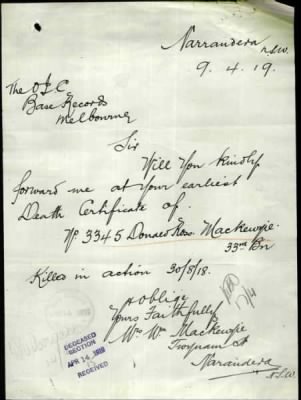 Narrandera
N.S.W.
9.4.19.
The O/C
Base Records
Melbourne
Sir
Will You Kindly
forward me at your earliest
Death Certificate of.
No 3345 Donald Ross. Mackenzie.
33rd Bn
Killed in action 30/8/18.
& oblige
Yours Faithfully
Mrs W. Mackenzie
Twynam St
Narrandera
N.S.W.
DECEASED
SECTION
APR 14 1919
RECEIVED